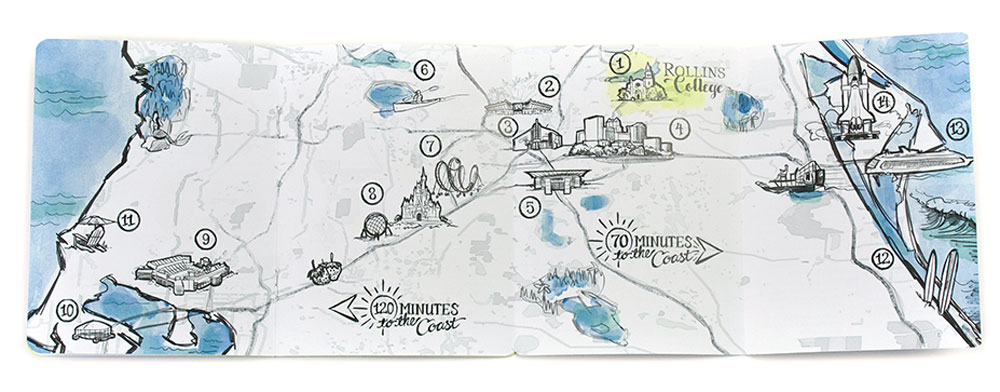 1
ROLLINS
College
2
3
4
5
6
7
8
9
10
11
12
13
14
70 MINUTES
to the Coast
120 MINUTES
to the Coast